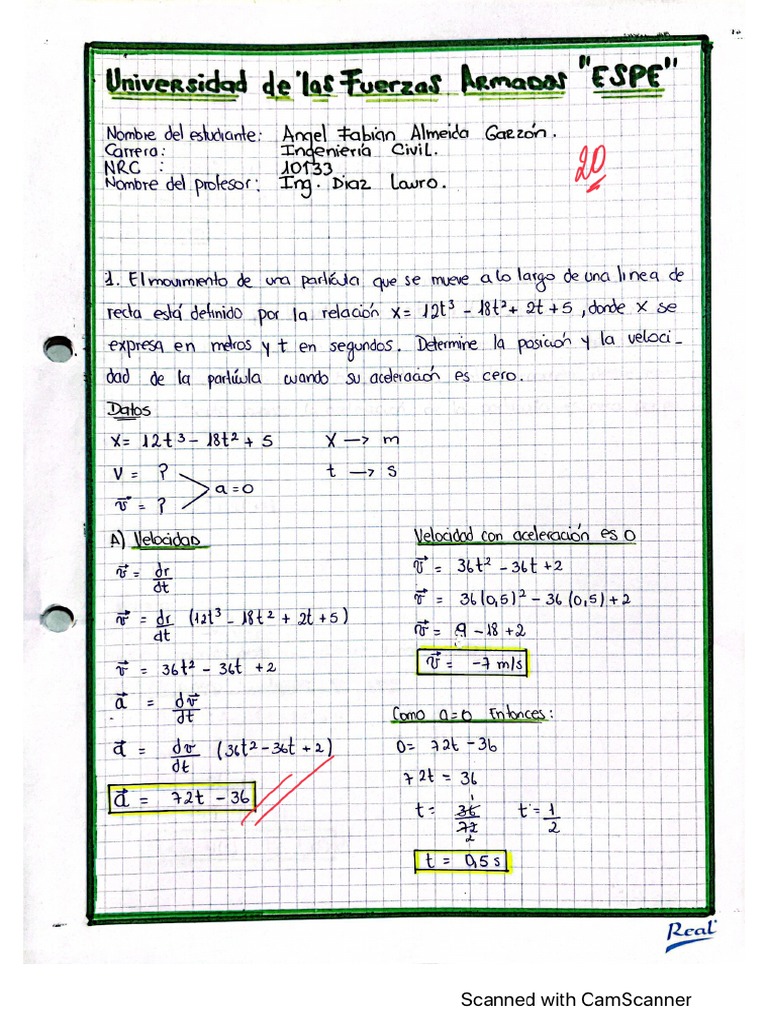 Universidad de las Fuerzas Armadas "ESPE"
Nombre del estudiante: Angel Fabian Almeida Garzón.
Carrera: Ingeniería Civil.
NRC : 10133
Nombre del profesor: Ing. Diaz Lauro.
20
1. El movimiento de una partícula que se mueve a lo largo de una linea de
recta está definido por la relación x= 12t³ - 18t² + 2t + 5, donde x se
expresa en metros y t en segundos. Determine la posición y la veloci-
dad de la partícula cuando su aceleración es cero.
Datos
x= 12t³ - 18t² + 5 X → m
V = ? t → s
a = 0
v⃗ = ?
A) Velocidad
v⃗ = dr/dt
v⃗ = dr/dt (12t³ - 18t² + 2t + 5)
v⃗ = 36t² - 36t + 2
a⃗ = dv⃗/dt
a⃗ = dv/dt (36t² - 36t + 2)
a⃗ = 72t - 36
Velocidad con aceleración es 0
v⃗ = 36t² - 36t + 2
v⃗ = 36(0,5)² - 36(0,5) + 2
v⃗ = 9 - 18 + 2
v⃗ = -7 m/s
Como a=0 Entonces:
0= 72t - 36
72t = 36
t = 36/72 1 2 t = 1/2
t = 0,5 s
Real
Scanned with CamScanner